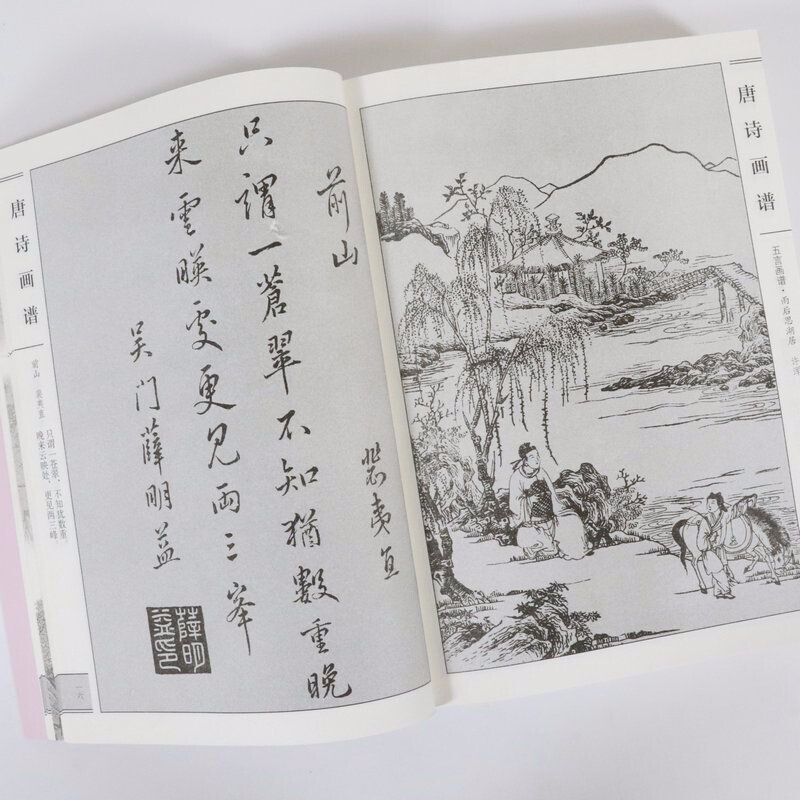 唐诗画谱
五言画谱·雨后思湖居 许浑
前山
裴夷直
只謂一蒼翠不知猶數重晚
来雲暎處更見两三峯
吴门薛明益
薛明益印
唐诗画谱
前山 裴夷直
只谓一苍翠，不知犹数重。
晚来云映处，更见两三峰。
一六